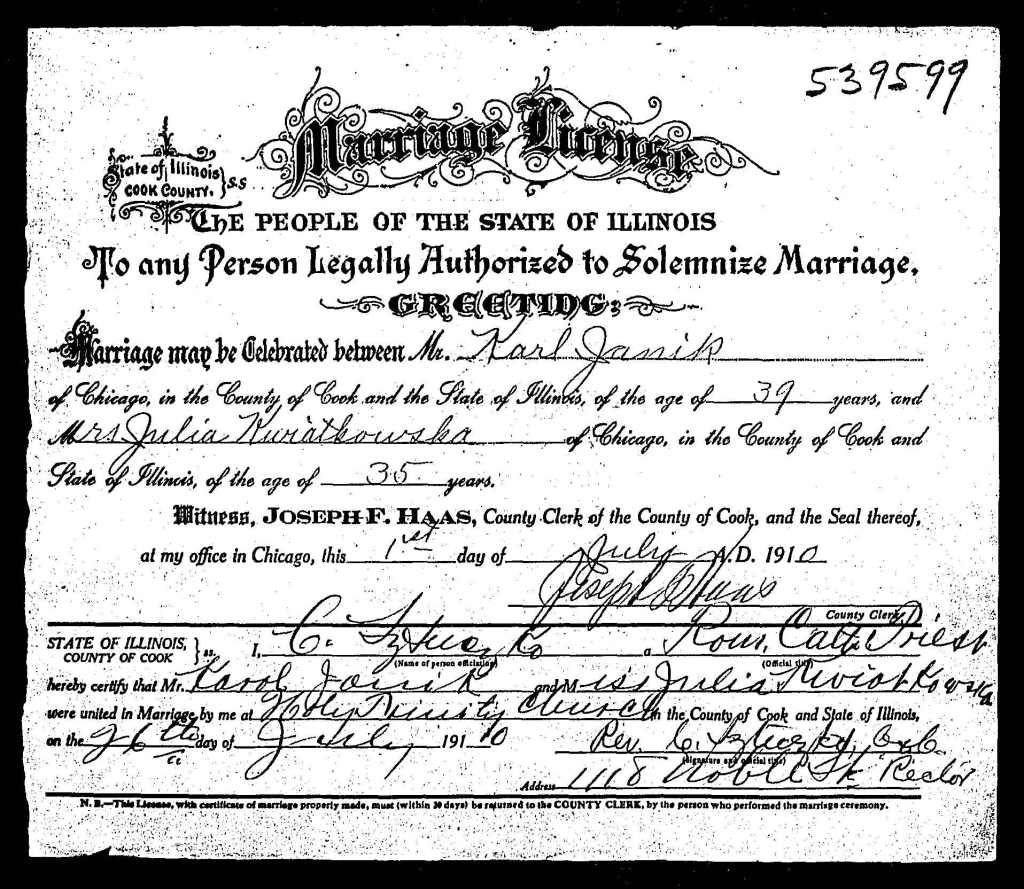 539599
Marriage License
State of Illinois
COOK COUNTY. } S.S
The PEOPLE OF THE STATE OF ILLINOIS
To any Person Legally Authorized to Solemnize Marriage,
GREETING:
Marriage may be Celebrated between Mr. Karl Janik
of Chicago, in the County of Cook and the State of Illinois, of the age of 39 years, and
Mrs Julia Kwiatkowska of Chicago, in the County of Cook and
State of Illinois, of the age of 35 years.
Witness, JOSEPH F. HAAS, County Clerk of the County of Cook, and the Seal thereof,
at my office in Chicago, this 1st day of July A.D. 1910
Joseph F Haas
County Clerk
STATE OF ILLINOIS,
COUNTY OF COOK } ss. I, C. Sztuczko a Rom. Cath. Priest
(Name of person officiating) (Official title)
hereby certify that Mr. Karol Janik and Miss Julia Kwiatkowska
were united in Marriage by me at Holy Trinity Church in the County of Cook and State of Illinois,
on the 26th day of July 1910 Rev. C. Sztuczko,
(Signature and official title)
Address 1118 Noble St. Rector
N. B.—This License, with certificate of marriage properly made, must (within 30 days) be returned to the COUNTY CLERK, by the person who performed the marriage ceremony.